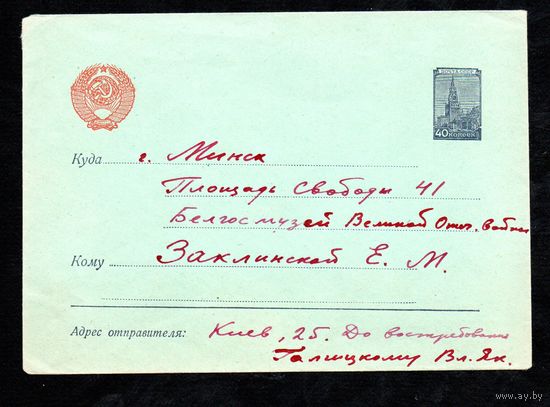 ПОЧТА СССР
40 КОПЕЕК
Куда г. Минск
Площадь Свободы 41
Белгосмузей Великой Отеч. войны
Кому Заклинской Е. М.
Адрес отправителя: Киев, 25. До востребования
Галицкому Вл. Як.
www.ay.by